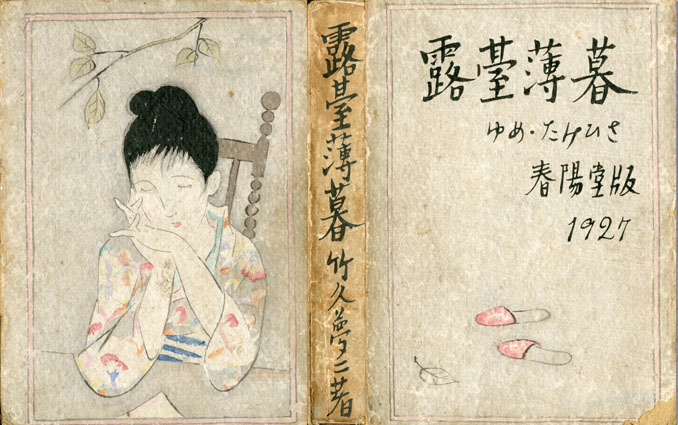 露臺薄暮
ゆめ・たけひさ
春陽堂版
1927
露臺薄暮 竹久夢二著